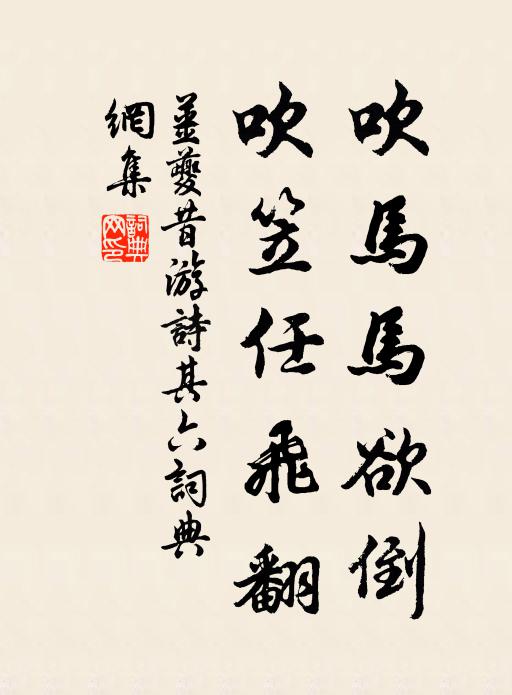 吹馬馬欲倒
吹笠任飛翻
姜夔昔游詩其六詞典
網集
詞典
網印